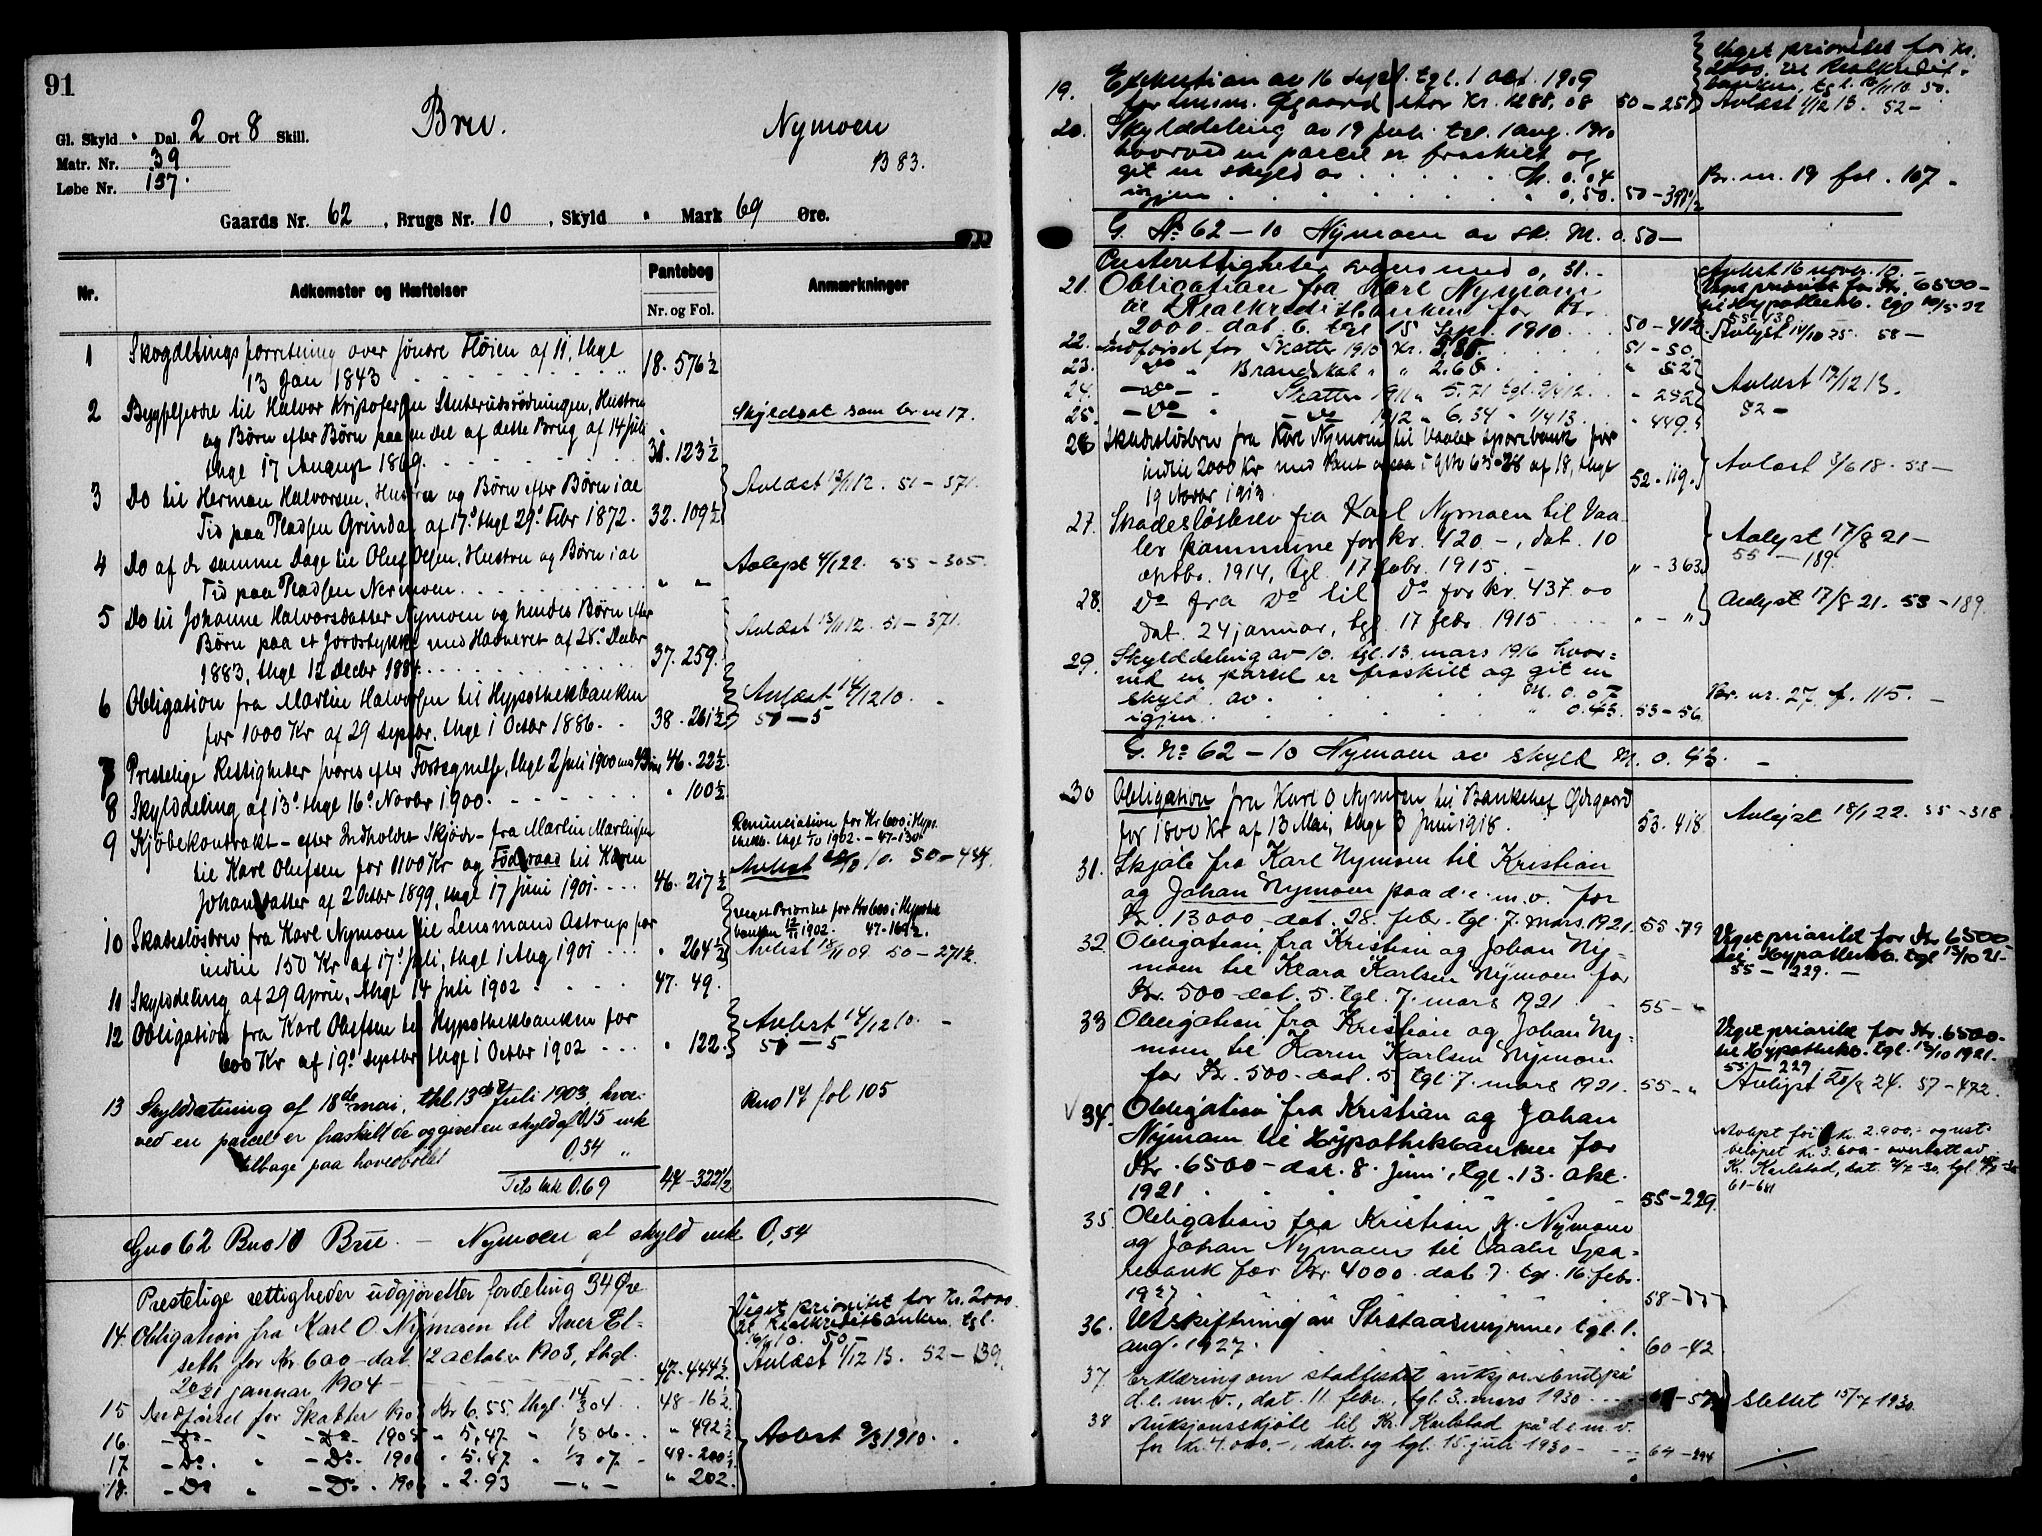 91
Bru. Nymoen
Gl. Skyld " Dal. 2 Ort 8 Skill.
B 83.
Matr. Nr. 39
Løbe Nr. 157.
Gaards Nr. 62, Brugs Nr. 10, Skyld " Mark 69 Øre.
Nr. Adkomster og Hæftelser Pantebog Nr. og Fol. Anmærkninger
1 Skogdelingsforretning over søndre Fløien af 11, thgl
13 Jan 1843 18. 576½
2 Bygselseddel til Halvor Kristofersen Hustru
og Børn efter Børn paa en Del af dette Brug af 14 Juli
thgl 17 August 1869. 31. 123½ Skyldsat som br no 17.
3 Do til Herman Halvorsen, Hustru og Børn efter Børn i al
Tid paa Pladsen Grindal af 17. thgl 29. Febr 1872. 32. 109½ Avlæst 13/11 12. 51-371.
4 Do af de samme Dage til Oluf Olsen, Hustru og Børn i al
Tid paa Pladsen Nermoen " " Avlyst 4/1 22. 55-305.
5 Do til Johanne Halvorsdatter Nymoen og hendes Børn efter
Børn paa et Jordstykke med Havneret af 28. Decbr
1883, thgl 12 Decbr 1884 37. 259. Avlæst 13/11 12. 51-371.
6 Obligation fra Martin Halvorsen til Hypothekbanken
for 1000 Kr af 29 septbr, thgl 1 Octbr 1886. 38. 261½ Avlæst 14/12 10. 51-5
7 Prestelige Rettigheder svares efter Fortegnelse, thgl 2 Juli 1900 med 46. 22½
8 Skylddeling af 13. thgl 16. Novbr 1900. " 100½
9 Kjøbekontrakt - efter Indholdet Skjøde - fra Martin Martinsen
til Karl Olufsen for 1100 Kr og Føderaad til Karen
Johansdatter af 2 Octbr 1899, thgl 17 Juni 1901. 46. 217½
Renunciation for Kr 600 i Hyp.
thekb. thgl 1/10 1902. - 47-130
Avlæst 10. 50-444.
10 Skadesløsbrev fra Karl Nymoen til Lensmand Astrup for
indtil 150 Kr af 17. Juli, thgl 1 Aug 1901 " 264½
viger Prioritet for Kr 600 i Hypothek
banken 12/11 1902. 47-169½.
Avlæst 18/11 09. 50-271½.
11 Skylddeling af 29 April, thgl 14 Juli 1902 47. 49.
12 Obligation fra Karl Olufsen til Hypothekbanken for
600 Kr af 19. septbr, thgl 1 Octbr 1902 " 122. Avlæst 14/12 10. 51-5
13 Skyldsætning af 18de mai, thl 13de Juli 1903, hvor
ved en parcel er fraskilt de og givet en skyld af 0,15 mk
tilbage paa hovedbølet 0,54 "
Tils mk 0,69 47-322½ Bno 14 fol 105
Gno 62 Bno 10 Bru - Nymoen af skyld mk 0,54
Prestelige rettigheder udgjør efter fordeling 34 Øre
14. Obligation fra Karl O. Nymoen til Iver El-
seth for Kr 600 - dat. 12 october 1903, thgl.
20 januar 1904 - 47-444½.
Viget prioritet for Kr. 2000
til Realkreditbanken tgl.
16/11 10. 50-
Avlæst 1/12 13. 52-139.
15 Indførsel for Skatter 1903 Kr 6.55. thgl. 14/3 04. 48-16½
16. - Do - " - Do - 1905 " 5,47 " 1/3 06. " 492½
17 - Do. " - Do. 1906 " 5.87 " 1/3 07 - 49-200½
18. - Do " - Do. 1906 " 2.93 - " - " 202. Avlæst 9/3 1910.
19. Exekution av 16 sept. tgl. 1 okt. 1909
for lensm. Øgaard stor Kr. 1288,08 50-251
Viget prioritet for Kr.
2000 til Realkredit-
banken, tgl. 16/11 10. 50.
Avlæst 1/12 13. 52-
20. Skylddeling av 19 juli tgl. 1 aug. 1910
hvorved en parcel er fraskilt og
git en skyld av M. 0,04
igjen " 0,50. 50-391½ Br. nr. 19 fol. 107.
G. No 62-10 Nymoen av sk. M. 0.50-
Presterettigheter svares med 0,31.
21. Obligation fra Karl Nymoen
til Realkreditbanken for Kr.
2000 dat. 6. tgl 15 Sept. 1910. 50-412
Avlæst 16 novbr. 10. -
Viget prioritet for Kr. 6500-
til Hypothekb. tgl 10/5 22
55-430.
Avlyst 14/10 25. 58-
22. Indførsel for Skatter 1910 Kr. 3,85. 51-50.
23. Do " Brandskat " " 2.68 " 52
24. - Do - " Skatter 1911 " 5.71 tgl. 9/4 12. " 282
25. - Do - " - Do 1912 " 6,34 " 1/4 13. " 449. Avlæst 17/12 13. 52-
26 Skadesløsbrev fra Karl Nymoen til Vaaler Sparebank for
indtil 2000 Kr med Pant ogsaa i gno 63 af 18, thgl
19 Novbr 1913 52-119. Avlæst 3/6 18. 53-
27. Skadesløsbrev fra Karl Nymoen til Vaa-
ler kommune for kr. 420 -, dat. 10
oktbr. 1914, tgl. 17 febr. 1915. " - 363 Avlyst 17/8 21- 55-189.
28. Do fra Do til Do for kr. 437.00
dat. 24 januar, tgl. 17 febr. 1915 " - " Avlyst 17/8 21. 55-189.
29. Skylddeling av 10. tgl. 13. mars 1916 hvor-
ved en parcel er fraskilt og git en
skyld av M. 0.07
igjen " 0.43. 53-56. Br. nr. 27 f. 115.
G. No 62-10 Nymoen av skyld M. 0.43. -
30 Obligation fra Karl O Nymoen til Bankchef Ødegaard
for 1800 Kr af 13 Mai, thgl 3 Juni 1918. 53. 418 Avlyst 18/1 22. 55-318
31. Skjøte fra Karl Nymoen til Kristian
og Johan Nymoen paa d.e.m.v. for
Kr. 13000. dat. 28. febr. tgl. 7. mars 1921. 55-79
32. Obligation fra Kristian og Johan Ny-
moen til Klara Karlsen Nymoen for
Kr. 500- dat. 5. tgl. 7. mars 1921. 55- "
Viget prioritet for Kr 6500-
til Hypothekb. tgl 13/10 21-
55-229. -
33 Obligation fra Kristian og Johan Ny-
moen til Karen Karlsen Nymoen
for Kr. 500- dat. 5 tgl. 7. mars 1921. 55- "
Viget prioritet for Kr. 6500-
til Hypothekb. tgl. 13/10 1921.
55-229
Avlyst 24. 57-472.
34. Obligation fra Kristian og Johan
Nymoen til Hypothekbanken for
Kr. 6500- dat. 8. Juni, tgl. 13. okt.
1921 55-229.
Avlyst for kr. 2.900,- og rest-
beløpet kr. 3.600.- overtatt av
Kr. Karlstad, dat. 30, tgl.
61-641
35 Obligation fra Kristian K. Nymoen
og Johan Nymoen til Vaaler Spa-
rebank for Kr 4000. dat. 7. tgl. 16 febr.
1927 58-
36. Utskiftning av tgl. 1.
aug. 1927. 60-42
37. Erklæring om stadfestet auksjonsbud på
d.e.m.v., dat. 11. febr., tgl. 3. mars 1930 Slettet 15/7 1930.
38 Auksjonsskjøte til Kr. Karlstad på d.e.m.v.
for kr. 4.000.-, dat. og tgl. 15. juli 1930 - 64-294